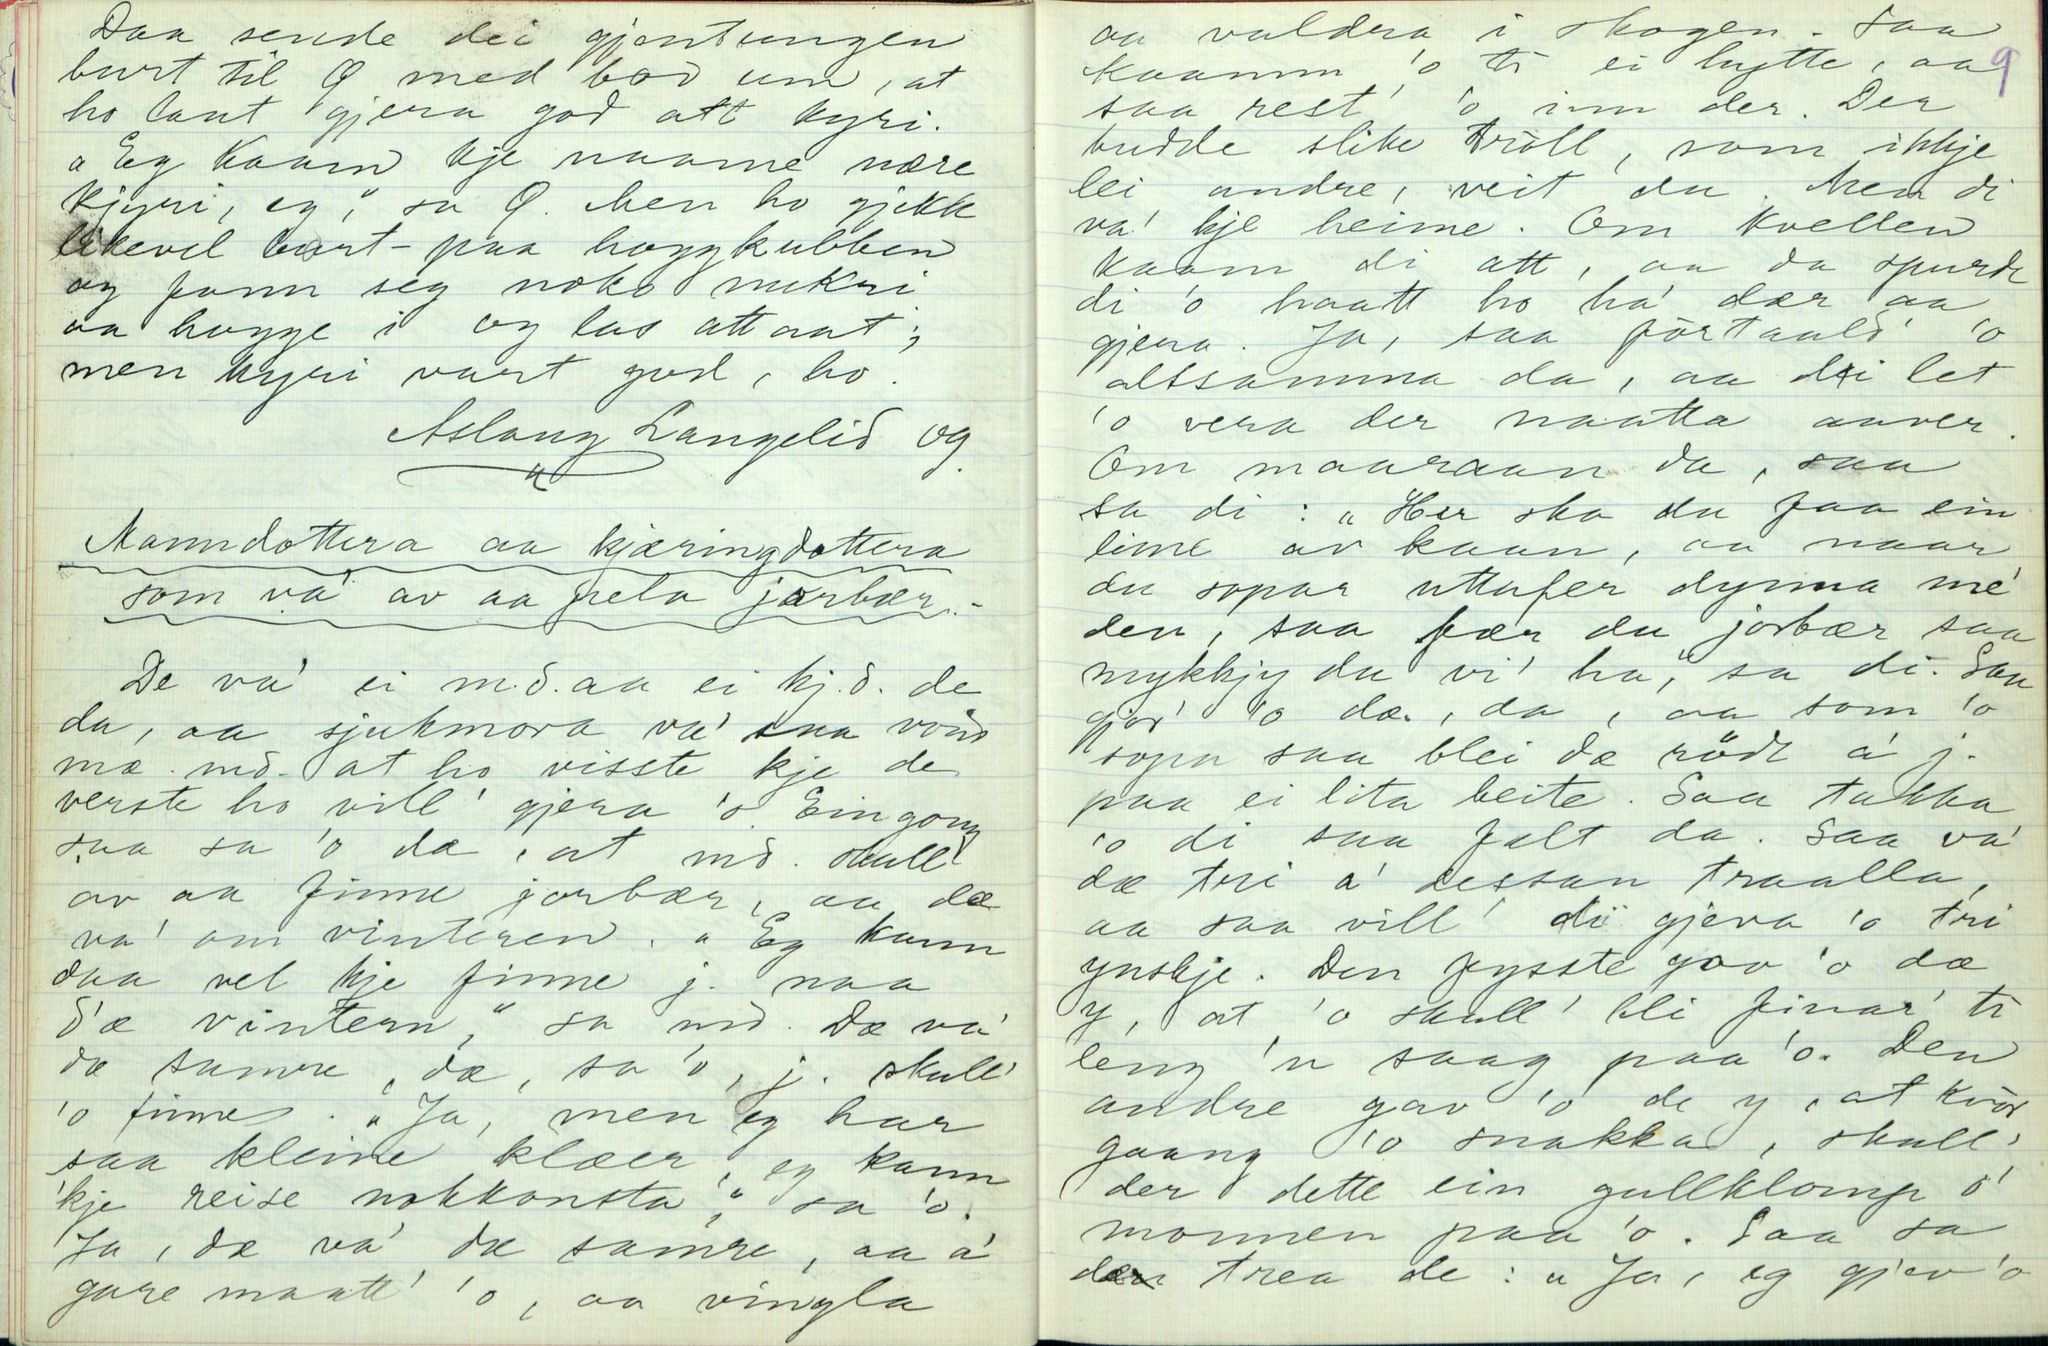 Daa sende dei gjentungen
burt til Q med bod um, at
ho laut gjera god att kyri.
„Eg kaam kje naame nære
kjyri, eg," sa Q. Men ho gjekk
likevel burt paa hoggkubben
og fann seg noko rukri
aa hogge i og las attaat;
men kyri vart god, ho.
Aslaug Langelid og
"
Manndottera aa kjæringdottera
som va' av aa leta jorbær.-
De va' ei m.d. aa ei kj.d. de
da, aa sjukmora va' saa vond
mæ md. at ho visste kje de
verste ho vill' gjera 'o. Ein gong
saa sa 'o dæ, at md. skull'
av aa finne jorbær, aa dæ
va' om vinteren. „Eg kann
daa vel kje finne j. naa
d'æ vintern," sa md. Dæ va'
dæ samre, dæ, sa 'o, j. skull'
'o finne. „Ja, men eg har
saa kleine klæer, eg kann
'kje reise nokkonsta'," sa 'o.
Ja, dæ va' dæ samre, aa a'
gare maatt' 'o, aa vingla
9
aa valdra i skogen. Saa
kaamm 'o ti ei hytte, aa
saa rest' 'o inn der. Der
budde slike tròll, som ikkje
lei andre, veit du. Men di
va' kje heime. Om kvellen
kaam di att, aa da spurde
di 'o haatt ho ha' dær aa
gjera. Ja, saa fòrtaald' 'o
altsamma da, aa dei let
'o vera der naatta aaver.
Om maaraan da, saa
sa di: „Her ska du faa ein
lime av kaan, aa naar
du sopar uttafer dynna mé
den, saa fær du jorbær saa
mykkjy du vi' ha," sa di. Saa
gjor' 'o dæ, da, aa som 'o
sopa saa blei dæ rödt a' j.
paa ei lita beite. Saa takka
'o di saa falt da. Saa va'
dæ tri a' dessan traalla,
aa saa vill' di gjeva 'o tri
ynskje. Den fysste gav 'o dæ
y, at 'o skull' bli finar' ti
leng 'n saag paa 'o. Den
andre gav 'o de y, at kvòr
gaang 'o snakka, skull'
der dette ein gullklomp o'
monnen paa 'o. Saa sa
den trea de: „Ja, eg gjev 'o